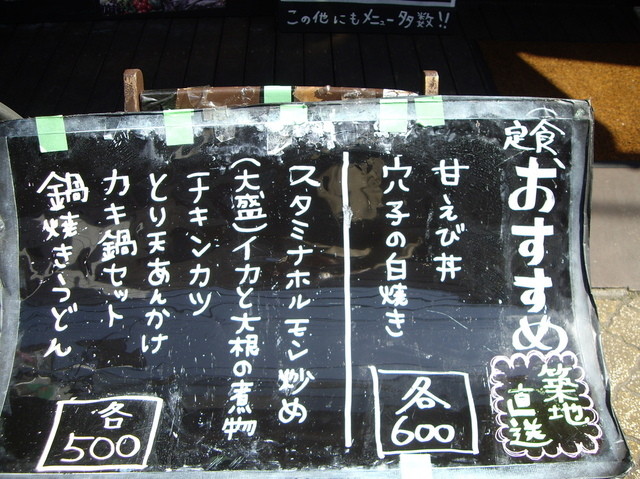 この他にもメニュー多数!!
定食
おすすめ
築地
直送
甘えび丼
穴子の白焼き
各
600
スタミナホルモン炒め
(大盛)イカと大根の煮物
チキンカツ
とり天あんかけ
カキ鍋セット
鍋焼きうどん
各
500